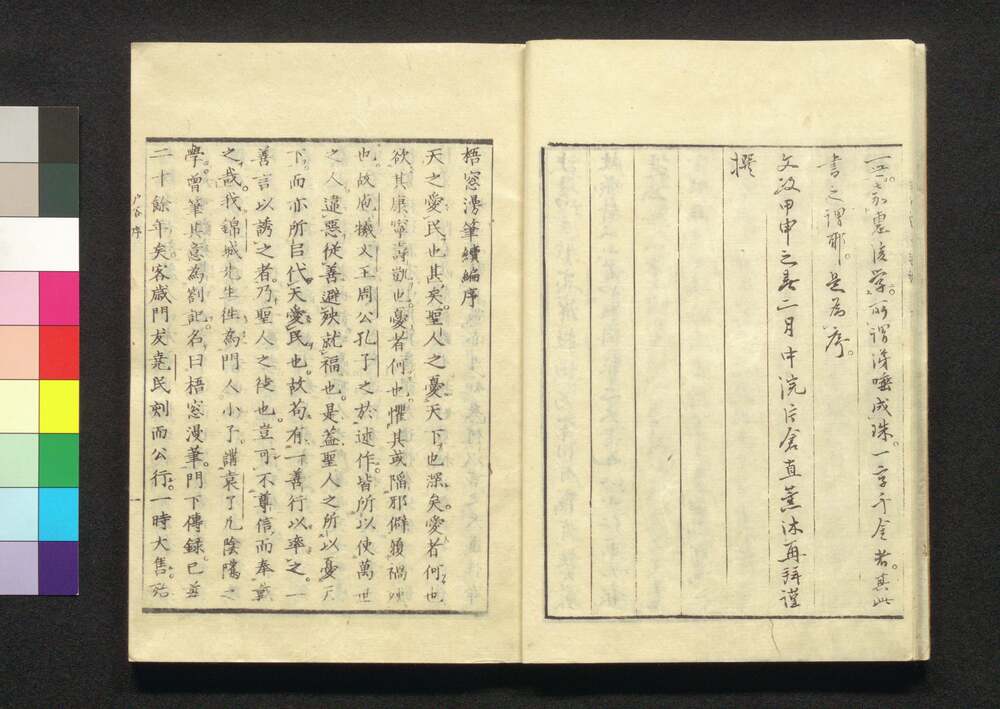 嘉惠後学。所謂咳唾成珠。一字千金。若其此
書之謂耶。是為序。
文政甲申之春二月中浣片倉直薫沐再拜謹
撰
梧窓漫筆續編序
天之愛民也其矣。聖人之憂天下也深矣。愛者何也
欲其康寧壽凱也憂者何也懼其或陷邪僻覆禍
也。故庖犧文王周公孔子之於述作。皆所以使萬世
之人。違惡從善避殃就福也。是蓋聖人之所以憂天
下。而亦所以代天愛民也。故苟有一善行以率之。一
善言以誘之者。乃聖人之徒也。豈可不尊信而奉戴
之哉。我錦城先生徃為門人小子。講袁了凡陰隲之
學。曽筆其意為劄記。名曰梧窓漫筆。門下傳録。已並
二十餘年矣。客歳門友堯民刻而公行。一時大售。
序
一